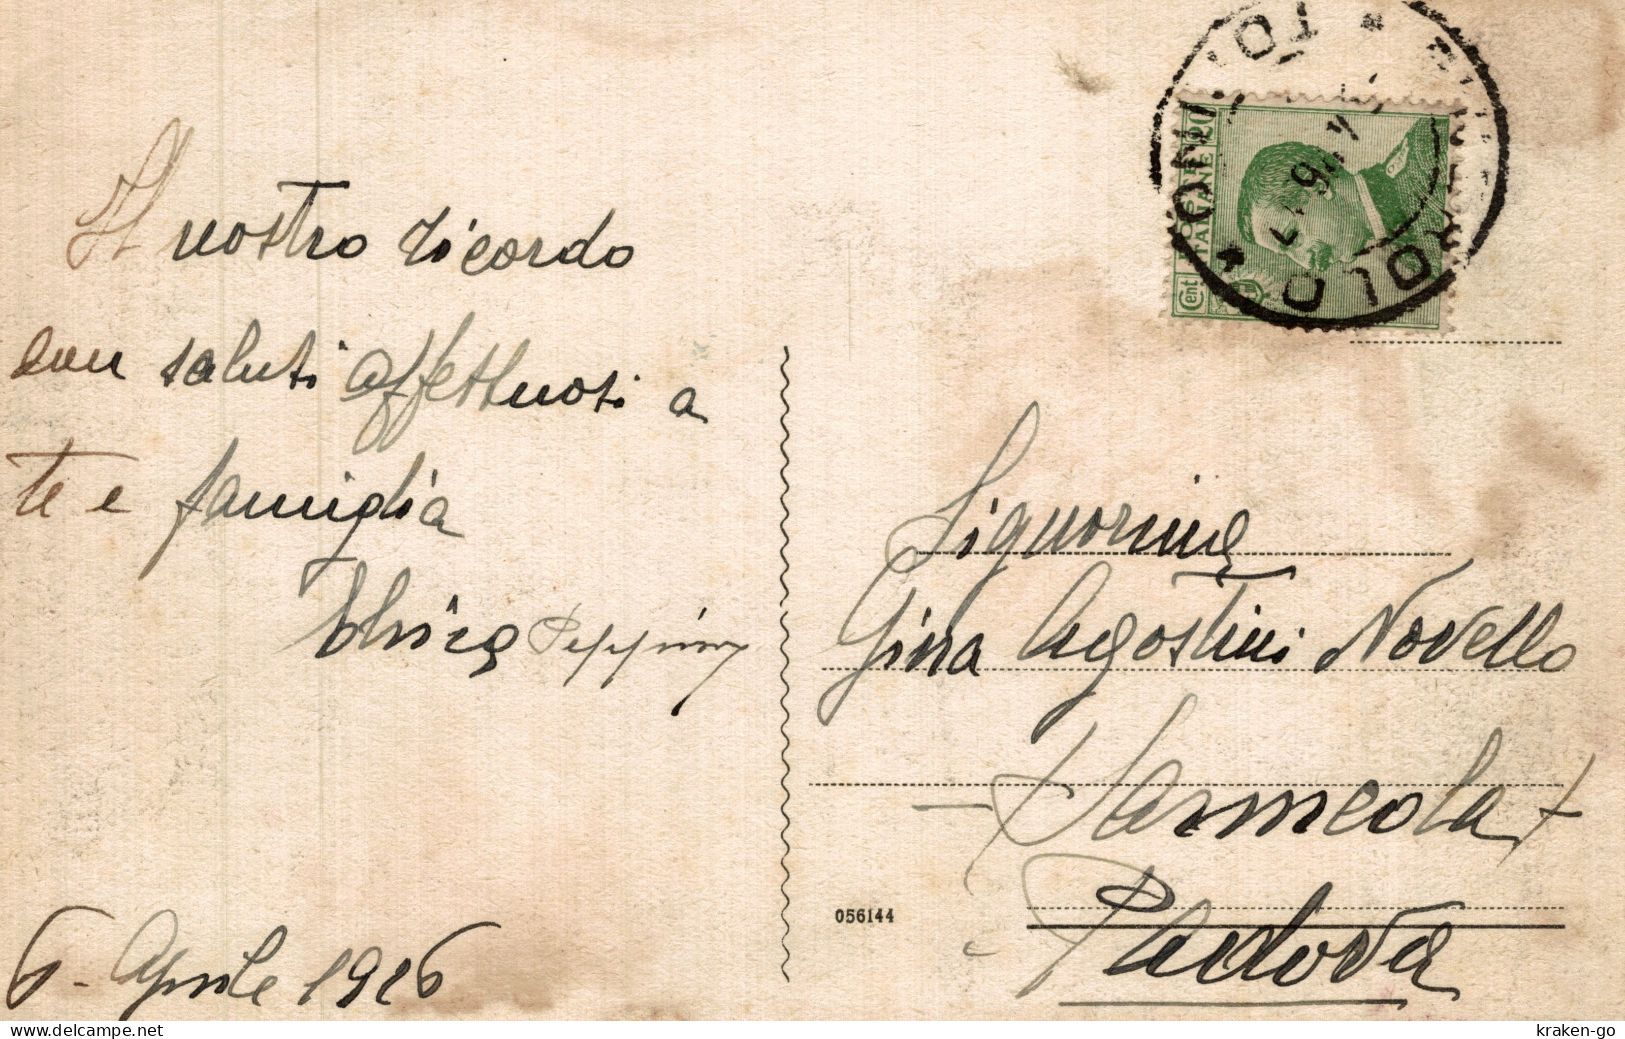 Il nostro ricordo
con saluti affettuosi a
te e famiglia
Elvira Peppino
6. Aprile 1926
POSTE
ITALIANE
Cent 20
Signorina
Gina Agostini Novello
Sarmeola
Padova
056144
kraken-go